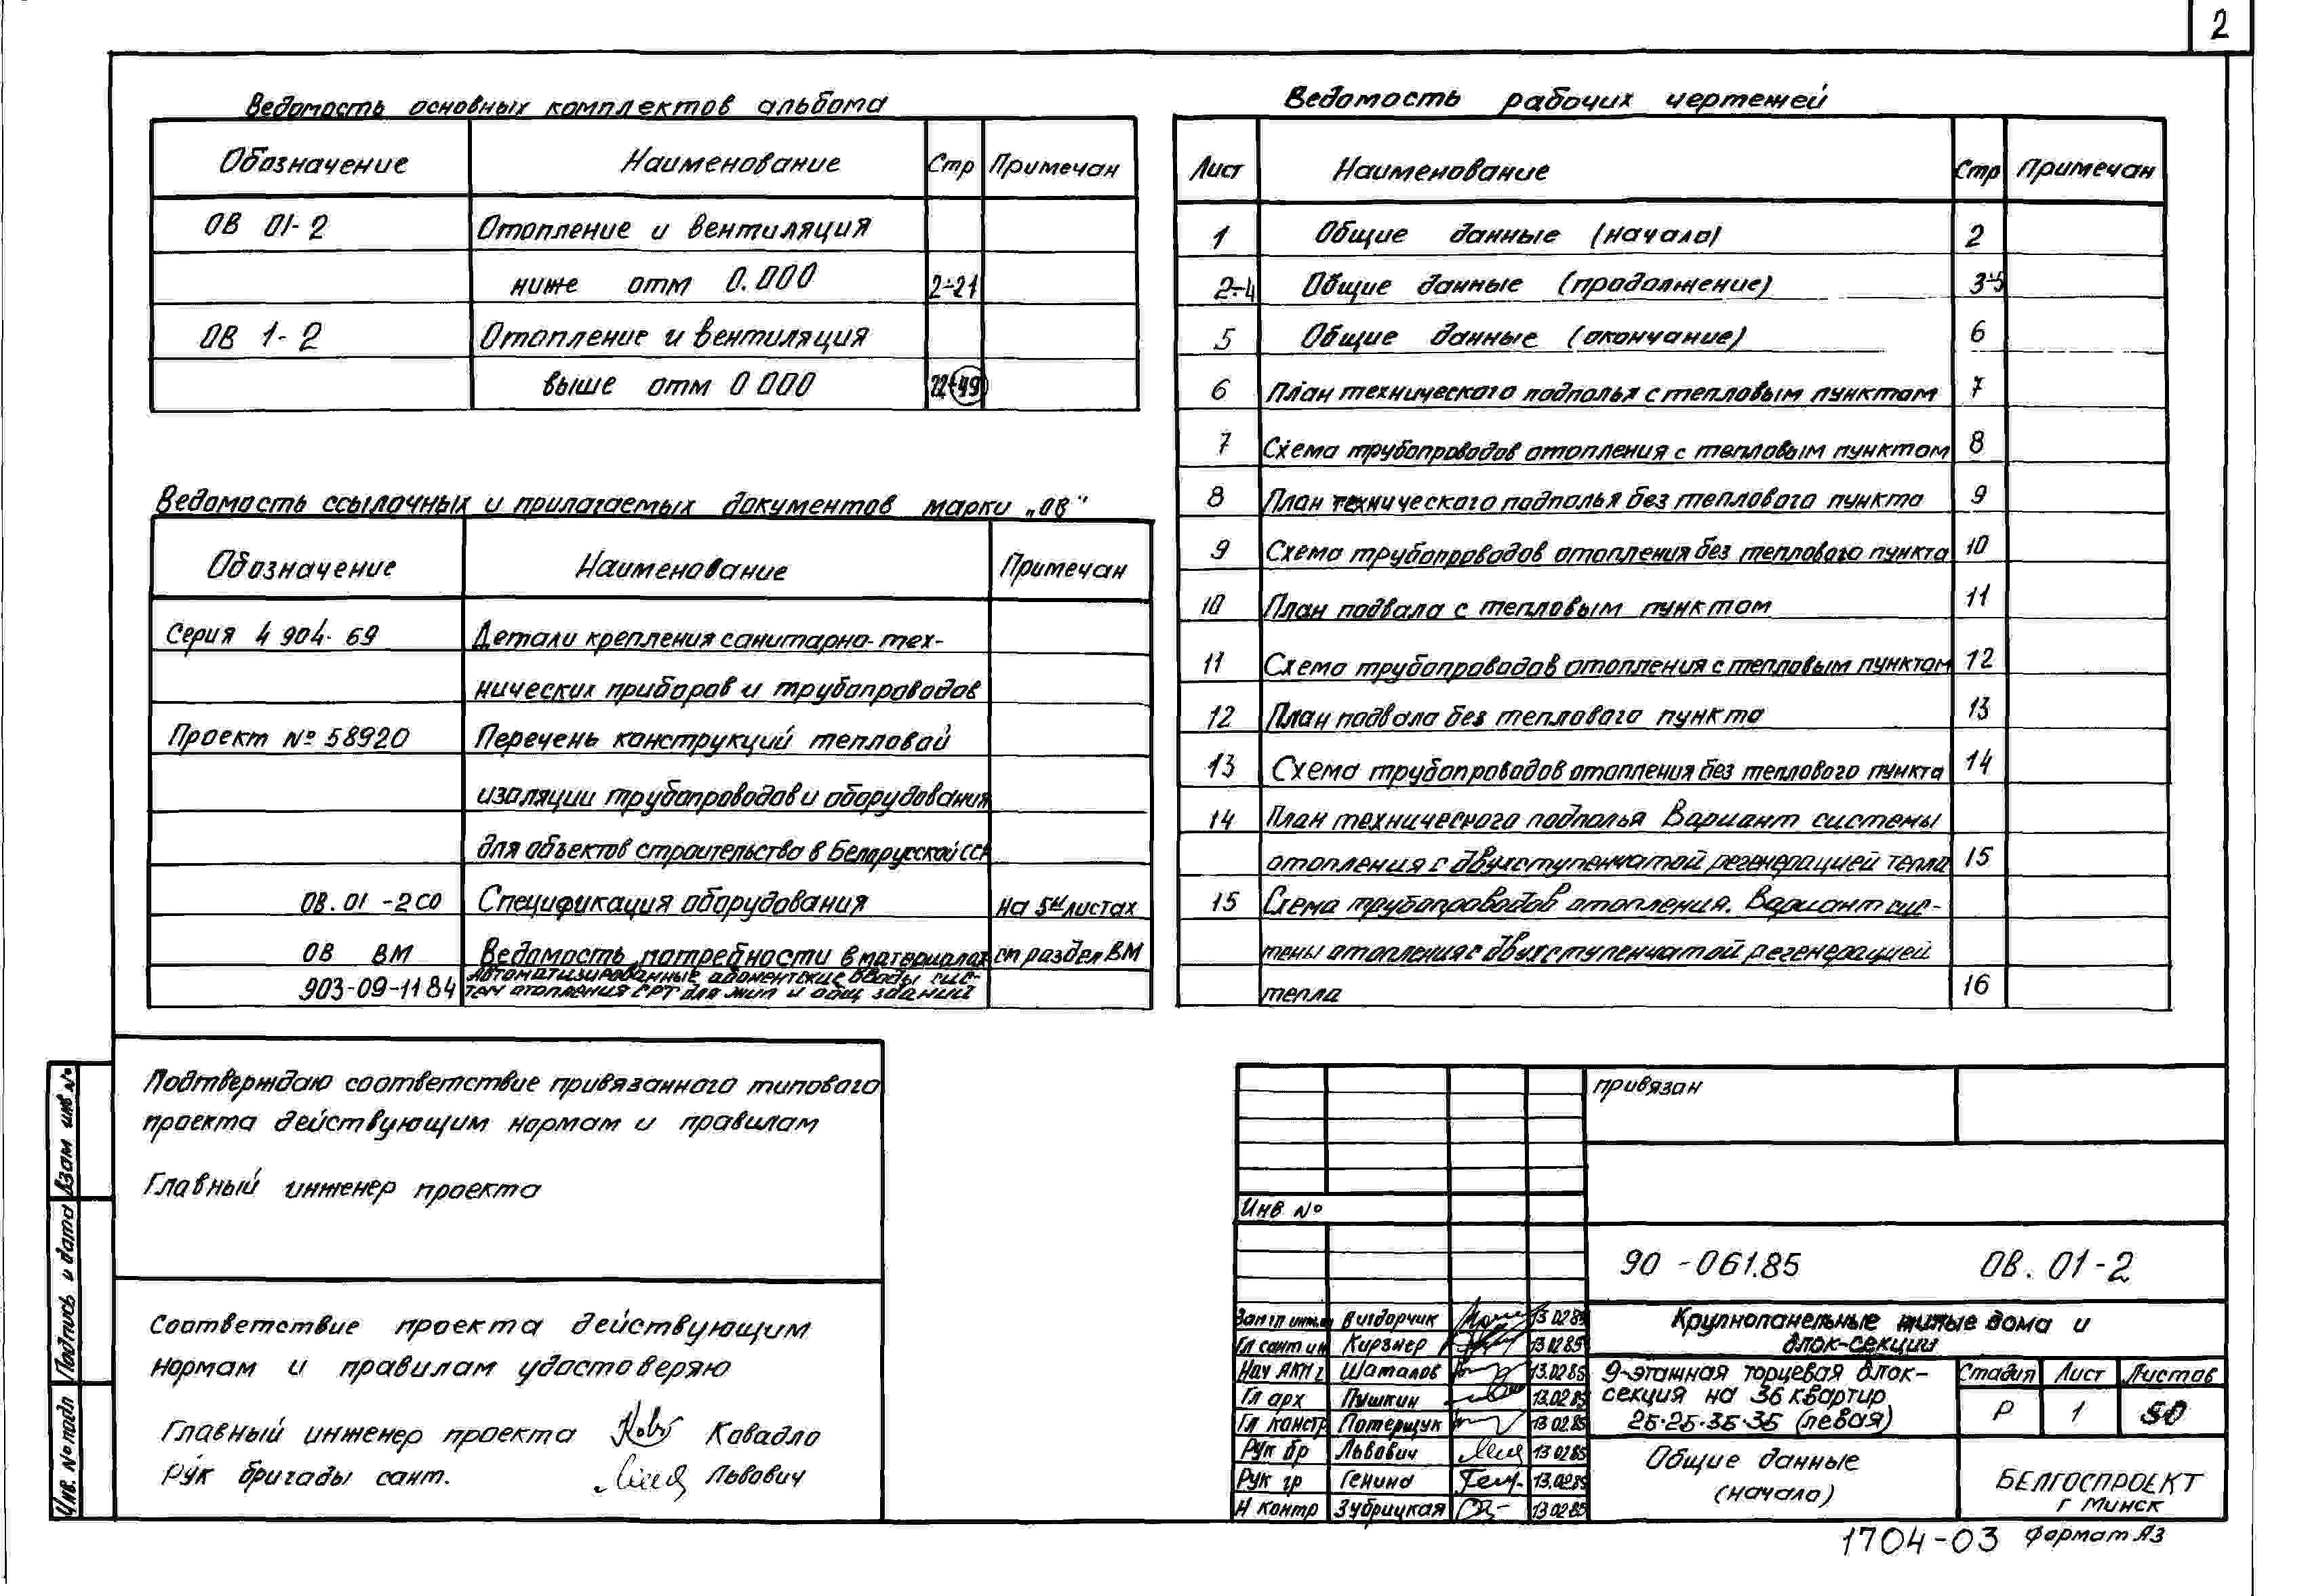 2
Ведомость основных комплектов альбома
Обозначение Наименование Стр Примечан
ОВ 01-2 Отопление и вентиляция
ниже отм 0.000 2÷21
ОВ 1-2 Отопление и вентиляция
выше отм 0 000 22÷49
Ведомость ссылочных и прилагаемых документов марки „ОВ"
Обозначение Наименование Примечан
Серия 4 904-69 Детали крепления санитарно-тех-
нических приборов и трубопроводов
Проект № 58920 Перечень конструкций тепловой
изоляции трубопроводов и оборудования
для объектов строительства в Белорусской ССР
ОВ.01-2СО Спецификация оборудования на 5и листах
ОВ ВМ Ведомость потребности в материалах см раздел ВМ
903-09-11 84 Автоматизированные абонентские вводы сис-
тем отопления СРТ для жил и общ зданий
Ведомость рабочих чертежей
Лист Наименование Стр Примечан
1 Общие данные (начало) 2
2÷4 Общие данные (продолжение) 3÷5
5 Общие данные (окончание) 6
6 План технического подполья с тепловым пунктом 7
7 Схема трубопроводов отопления с тепловым пунктом 8
8 План технического подполья без теплового пункта 9
9 Схема трубопроводов отопления без теплового пункта 10
10 План подвала с тепловым пунктом 11
11 Схема трубопроводов отопления с тепловым пунктом 12
12 План подвала без теплового пункта 13
13 Схема трубопроводов отопления без теплового пункта 14
14 План технического подполья Вариант системы
отопления с двухступенчатой регенерацией тепла 15
15 Схема трубопроводов отопления. Вариант сис-
темы отопления с двухступенчатой регенерацией
тепла 16
Подтверждаю соответствие привязанного типового
проекта действующим нормам и правилам
Главный инженер проекта
Соответствие проекта действующим
нормам и правилам удостоверяю
Главный инженер проекта Ковадло
Рук бригады сант. Львович
Взам инв №
Подпись и дата
Инв. № подл
привязан
Инв №
90-061.85 ОВ. 01-2
Зам гл инж Вигдорчик 13 02 85
Гл сант ин Кирзнер 13 02 85
Нач АКМ 2 Шаталов 13.02 85
Гл арх Пушкин 13.02 85
Гл констр Потерщук 13 02.85
Рук бр Львович 13 02 85
Рук гр Генина 13.02.85
Н контр Зубрицкая 13 02 85
Крупнопанельные жилые дома и
блок-секции
9-этажная торцевая блок-
секция на 36 квартир
2Б·2Б·3Б·3Б (левая)
Стадия Лист Листов
Р 1 50
Общие данные
(начало)
БЕЛГОСПРОЕКТ
г Минск
1704-03 Формат А3